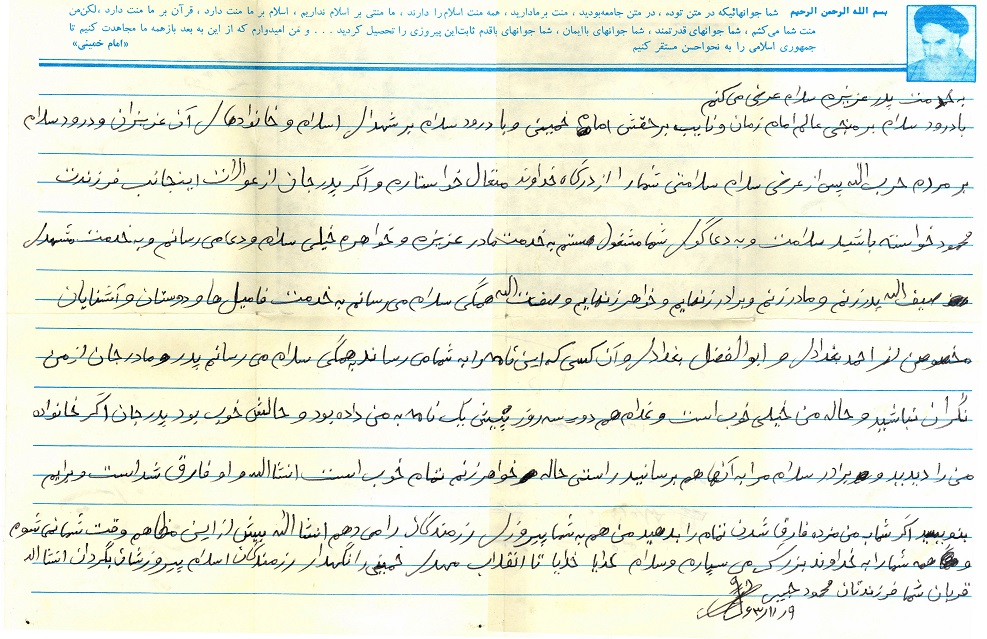 بسم الله الرحمن الرحیم شما جوانهائیکه در متن توده ، در متن جامعه‌بودید ، منت برمادارید ، همه منت اسلام را دارند ، ما منتی بر اسلام نداریم ، اسلام بر ما منت دارد ، قرآن بر ما منت دارد ، لکن‌من
منت شما می‌کشم ، شما جوانهای قدرتمند ، شما جوانهای باایمان ، شما جوانهای باقدم ثابت‌این پیروزی را تحصیل کردید . . . و من امیدوارم که از این به بعد بازهمه ما مجاهدت کنیم تا
جمهوری اسلامی را به نحواحسن مستقر کنیم «امام خمینی»
به خدمت پدر عزیزم سلام عرض می‌کنم
با درود سلام بر منجی عالم امام زمان و نایب برحقش امام خمینی و با درود سلام بر شهدای اسلام و خانواده‌های آن عزیزان و درود سلام
بر مردم حزب الله پس از عرض سلام سلامتی شما را از درگاه خداوند متعال خواستارم و اگر پدر جان از احوالات اینجانب فرزندت
محمود خواسته باشید سلامت و به دعاگوی شما مشغول هستم به خدمت مادر عزیزم و خواهرم خیلی سلام و دعا می رسانم و به خدمت مشهدی
صیف الله پدرزنم و مادرزنم و برادرزنهایم و خواهرزنهایم و صفت الله همگی سلام می رسانم به خدمت فامیل ها و دوستان و آشنایان
مخصوص از احمد بغدادی و ابوالفضل بغدادی و آن کسی که این نامه را به شما می رساند همگی سلام می رسانم پدر و مادر جان از من
نگران نباشید و حاله من خیلی خوب است و غلام هم دو سه روز پیش یک نامه به من داده بود و حالش خوب بود پدر جان اگر خانواده
من را دیدید و برادر سلام مرا به آنها هم برسانید راستی حاله خواهرزنم تمام خوب است انشاالله و او فارق شد است و برایم
بنویسید اگر شما به من مژده فارق شدن تمام را بدهید من هم به شما پیروزی رزمندگان را می دهم انشا الله بیش از این مزاهم وقت شما نمی شوم
و همه شما را به خداوند بزرگ می سپارم وسلام خدایا خدایا تا انقلاب مهدی خمینی را نگهدار رزمندگان اسلام پیروزشان بگردان انشا الله
قربان شما فرزندتان محمود حبیبی
۶۳/۱۱/۹